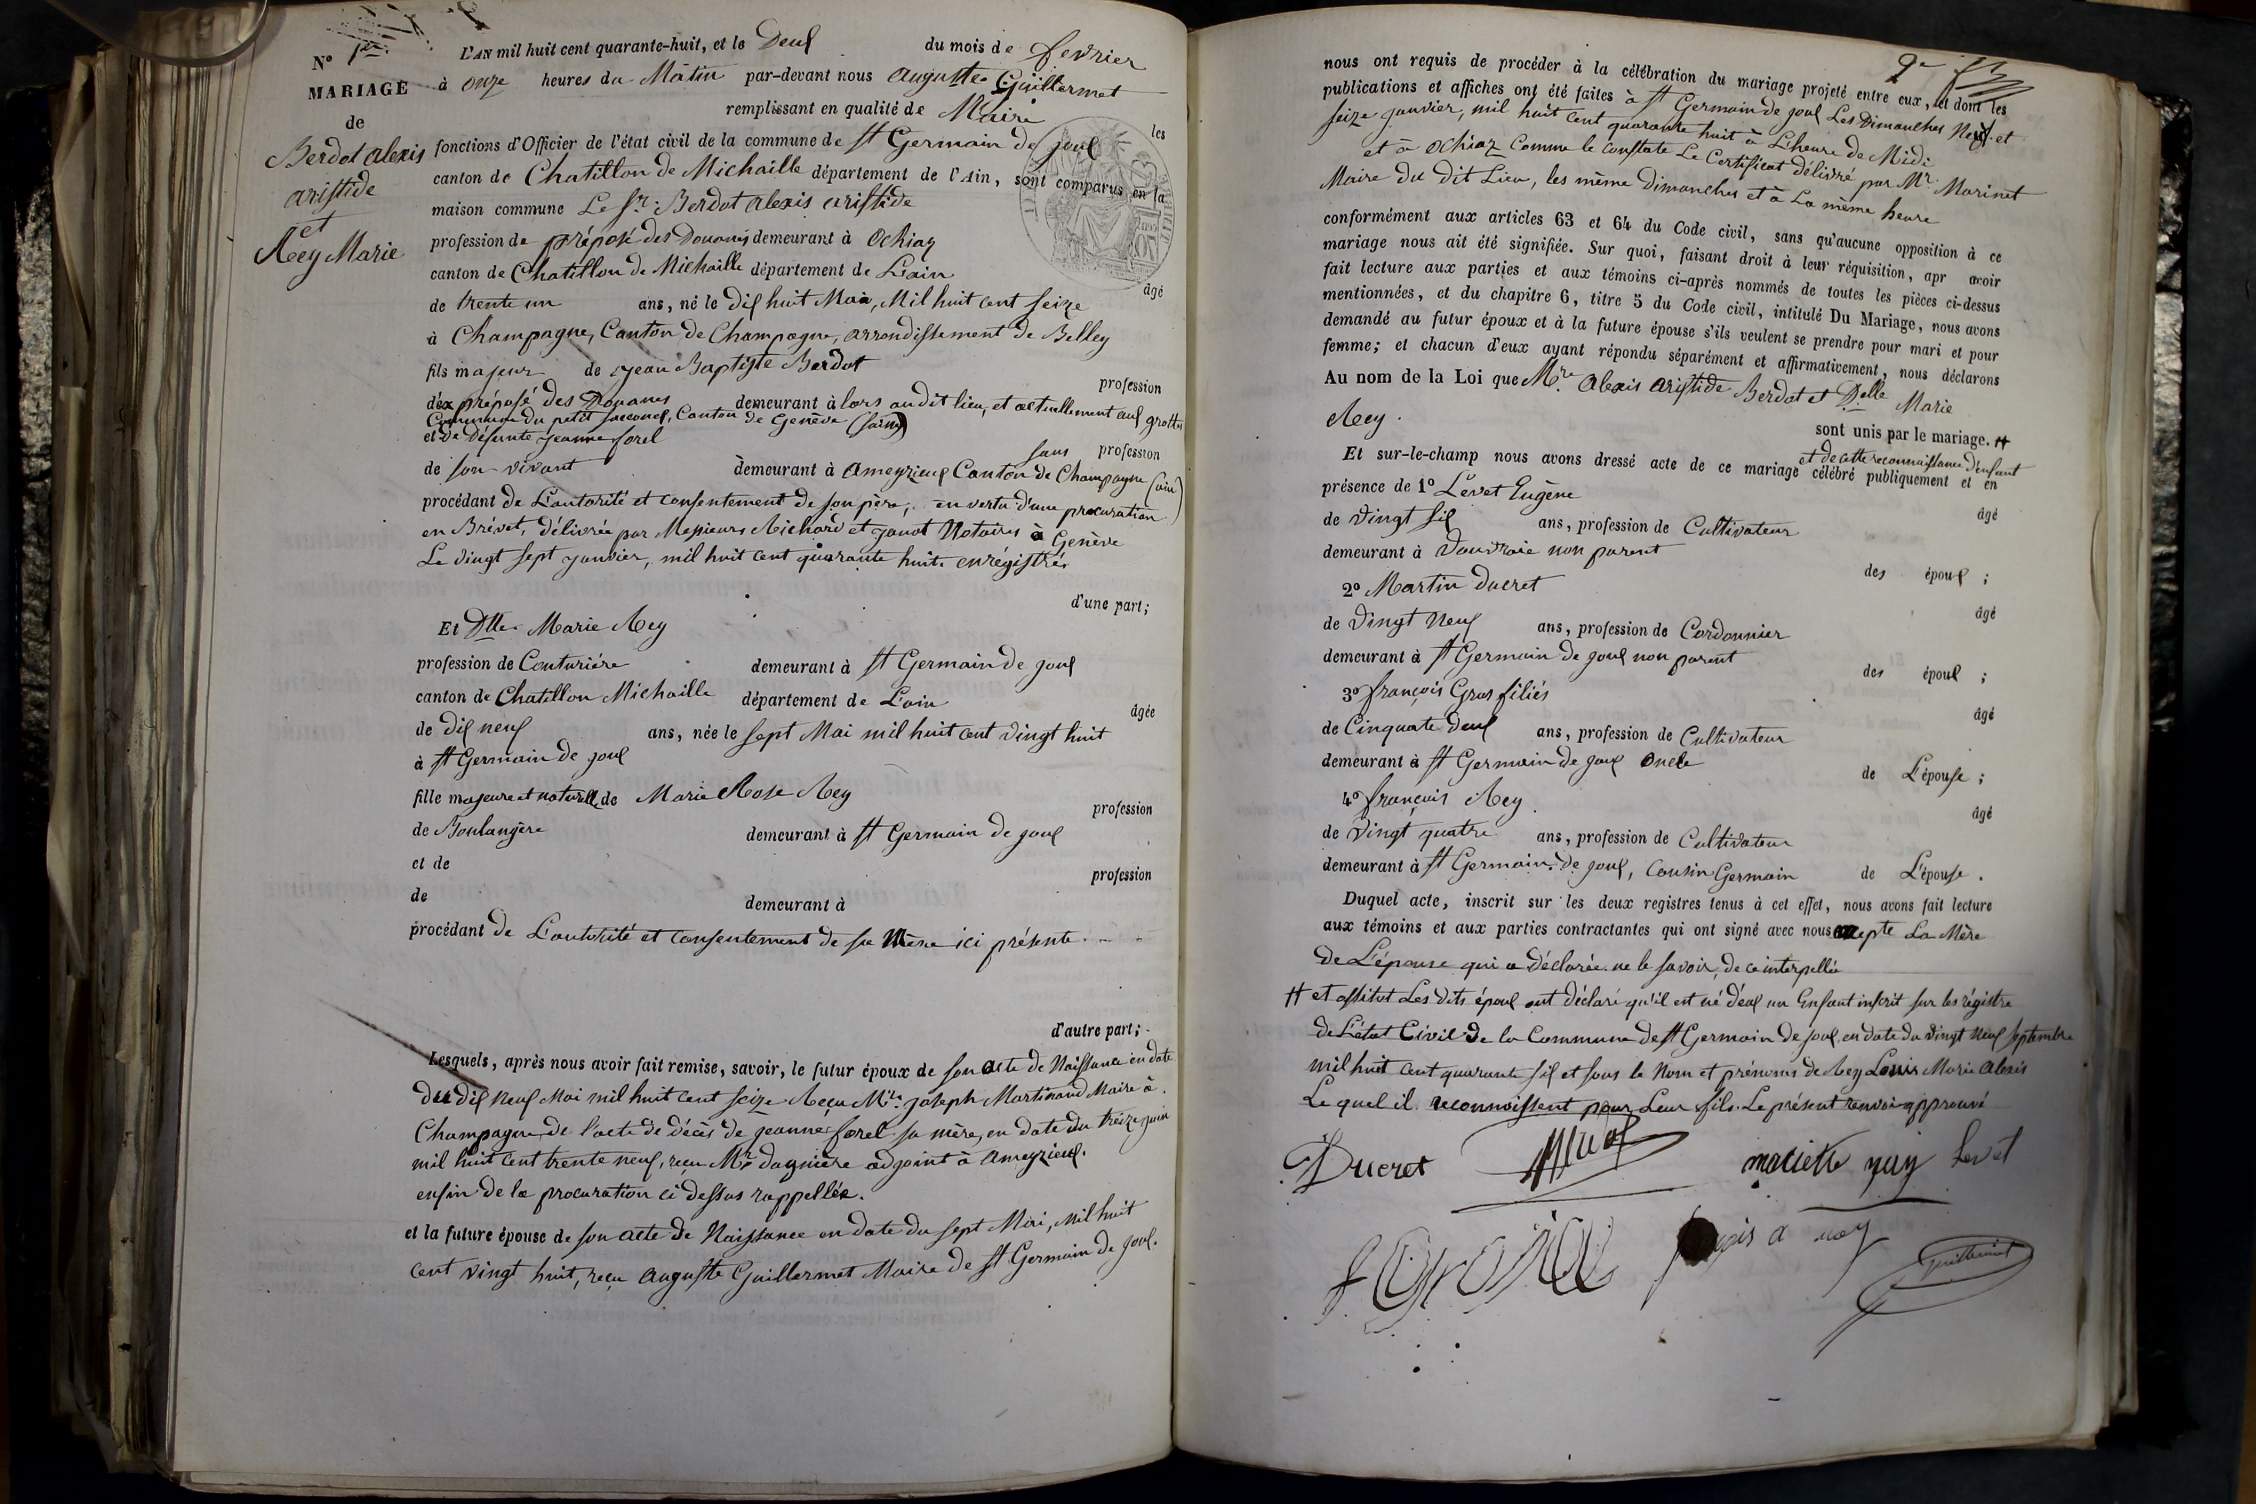 N° 1er
MARIAGE
de
Berdot alexis
aristide
et
Rey Marie
L'AN mil huit cent quarante-huit, et le Deux du mois de fevrier
à onze heures du Matin par-devant nous Auguste Guillermet
remplissant en qualité de Maire les
fonctions d'Officier de l'état civil de la commune de St Germain de joux
canton de Chatillon de Michaille département de l'Ain, sont comparus en la
maison commune Le Sr. Berdot alexis aristide
profession de préposé des Douanes demeurant à Ochiaz
canton de Chatillon de Michaille département de L'ain
âgé
de trente un ans, né le dix huit Mai, Mil huit cent seize
à Champagne, Canton de Champagne, arrondissement de Belley
fils majeur de jean Baptiste Berdot
profession
d'ex préposé des Douanes demeurant à lors au dit lieu, et actuellement aux grottes
Commune du petit saconex, Canton de Genève
et de Défunte jeanne forel
sans profession
de son vivant demeurant à ameyzieux Canton de Champagne (ain)
procédant de L'autorité et consentement de son père, en vertu d'une procuration
en Brévet, délivrée par Messieurs Richard et janot Notaires à Genève
Le vingt sept janvier, mil huit cent quarante huit. enrégistré.
d'une part;
Et Dlle. Marie Rey
profession de Couturiére demeurant à St Germain de joux
canton de Chatillon Michaille département de L'ain
âgée
de dix neuf ans, née le sept Mai mil huit cent vingt huit
à St Germain de joux
fille majeure et naturelle de Marie Rose Rey
profession
de Boulangère demeurant à St Germain de joux
et de
profession
de demeurant à
procédant de L'autorité et consentement de sa Mère ici présente.
d'autre part;
Lesquels, après nous avoir fait remise, savoir, le futur époux de son acte de Naissance en date
du dix neuf Mai mil huit cent seize Reçu Mr. joseph Martinand Maire à
Champagne, de l'acte de décès de jeanne forel sa mère, en date du treize juin
mil huit cent trente neuf, reçu Mr. dagnière adjoint à ameyzieux.
enfin de la procuration ci dessus rappellée.
et la future épouse de son acte de Naissance en date du sept Mai, mil huit
cent vingt huit, reçu auguste Guillermet Maire de St Germain de joux.
2e
nous ont requis de procéder à la célébration du mariage projeté entre eux, et dont les
publications et affiches ont été faites à St Germain de joux Les Dimanches Neuf et
seize janvier, mil huit cent quarante huit à L'heure de Midi
et à Ochiaz comme le constate Le Certificat délivré par Mr. Marinet
Maire du dit Lieu, les même Dimanches et à La même heure
conformément aux articles 63 et 64 du Code civil, sans qu'aucune opposition à ce
mariage nous ait été signifiée. Sur quoi, faisant droit à leur réquisition, apr avoir
fait lecture aux parties et aux témoins ci-après nommés de toutes les pièces ci-dessus
mentionnées, et du chapitre 6, titre 5 du Code civil, intitulé Du Mariage, nous avons
demandé au futur époux et à la future épouse s'ils veulent se prendre pour mari et pour
femme; et chacun d'eux ayant répondu séparément et affirmativement, nous déclarons
Au nom de la Loi que Mr. alexis aristide Berdot et Delle Marie
Rey.
sont unis par le mariage. #
et de cette reconnaissance d'enfant
Et sur-le-champ nous avons dressé acte de ce mariage célébré publiquement et en
présence de 1° Levet Eugène
âgé
de vingt six ans, profession de Cultivateur
demeurant à Vouvraie non parent
des époux ;
2° Martin Ducret
âgé
de vingt neuf ans, profession de Cordonnier
demeurant à St Germain de joux non parent
des époux ;
3° françois Gros filiés
âgé
de Cinquate deux ans, profession de Cultivateur
demeurant à St Germain de joux oncle
de L'épouse ;
4° françois Rey
âgé
de vingt quatre ans, profession de Cultivateur
demeurant à St Germain de joux, cousin Germain de L'épouse.
Duquel acte, inscrit sur les deux registres tenus à cet effet, nous avons fait lecture
aux témoins et aux parties contractantes qui ont signé avec nous La Mère
de L'épouse qui a déclarée ne le savoir, de ce interpellée
# et assitot Les dits époux ont déclaré qu'il est né d'eux un Enfant inscrit sur les régistre
de L'état Civil de la Commune de St Germain de joux, en date du vingt neuf septembre
mil huit cent quarante six et sous le Nom et prénoms de Rey Louis Marie Alexis
Le quel il reconnoissent pour Leur fils. Le présent renvoi approuvé
Ducret Levet
Guillermet